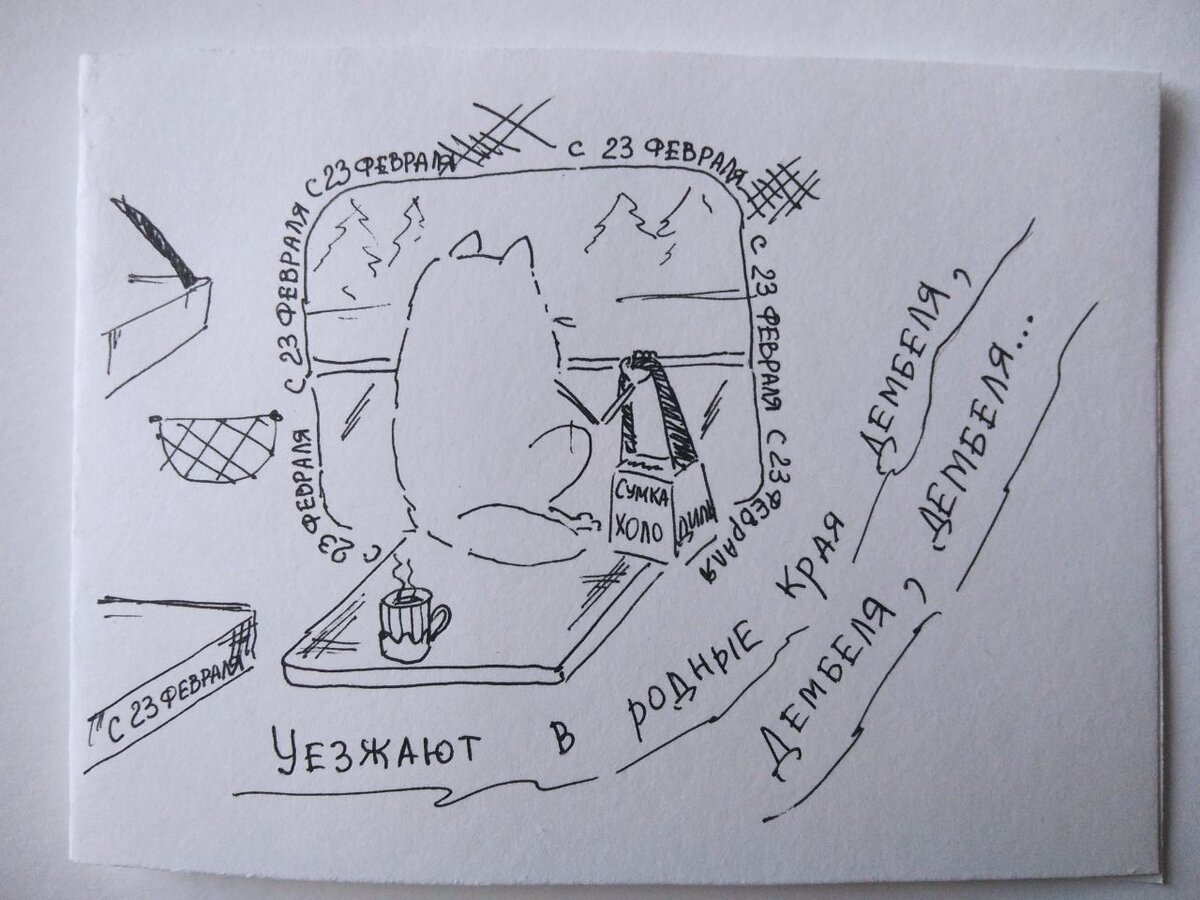 С 23 ФЕВРАЛЯ
С 23 ФЕВРАЛЯ
С 23 ФЕВРАЛЯ
С 23 ФЕВРАЛЯ
С 23 ФЕВРАЛЯ
С 23 ФЕВРАЛЯ
СУМКА
ХОЛО
ДИЛЬ
С 23 ФЕВРАЛЯ
УЕЗЖАЮТ В РОДНЫЕ КРАЯ
ДЕМБЕЛЯ,
ДЕМБЕЛЯ, ДЕМБЕЛЯ...